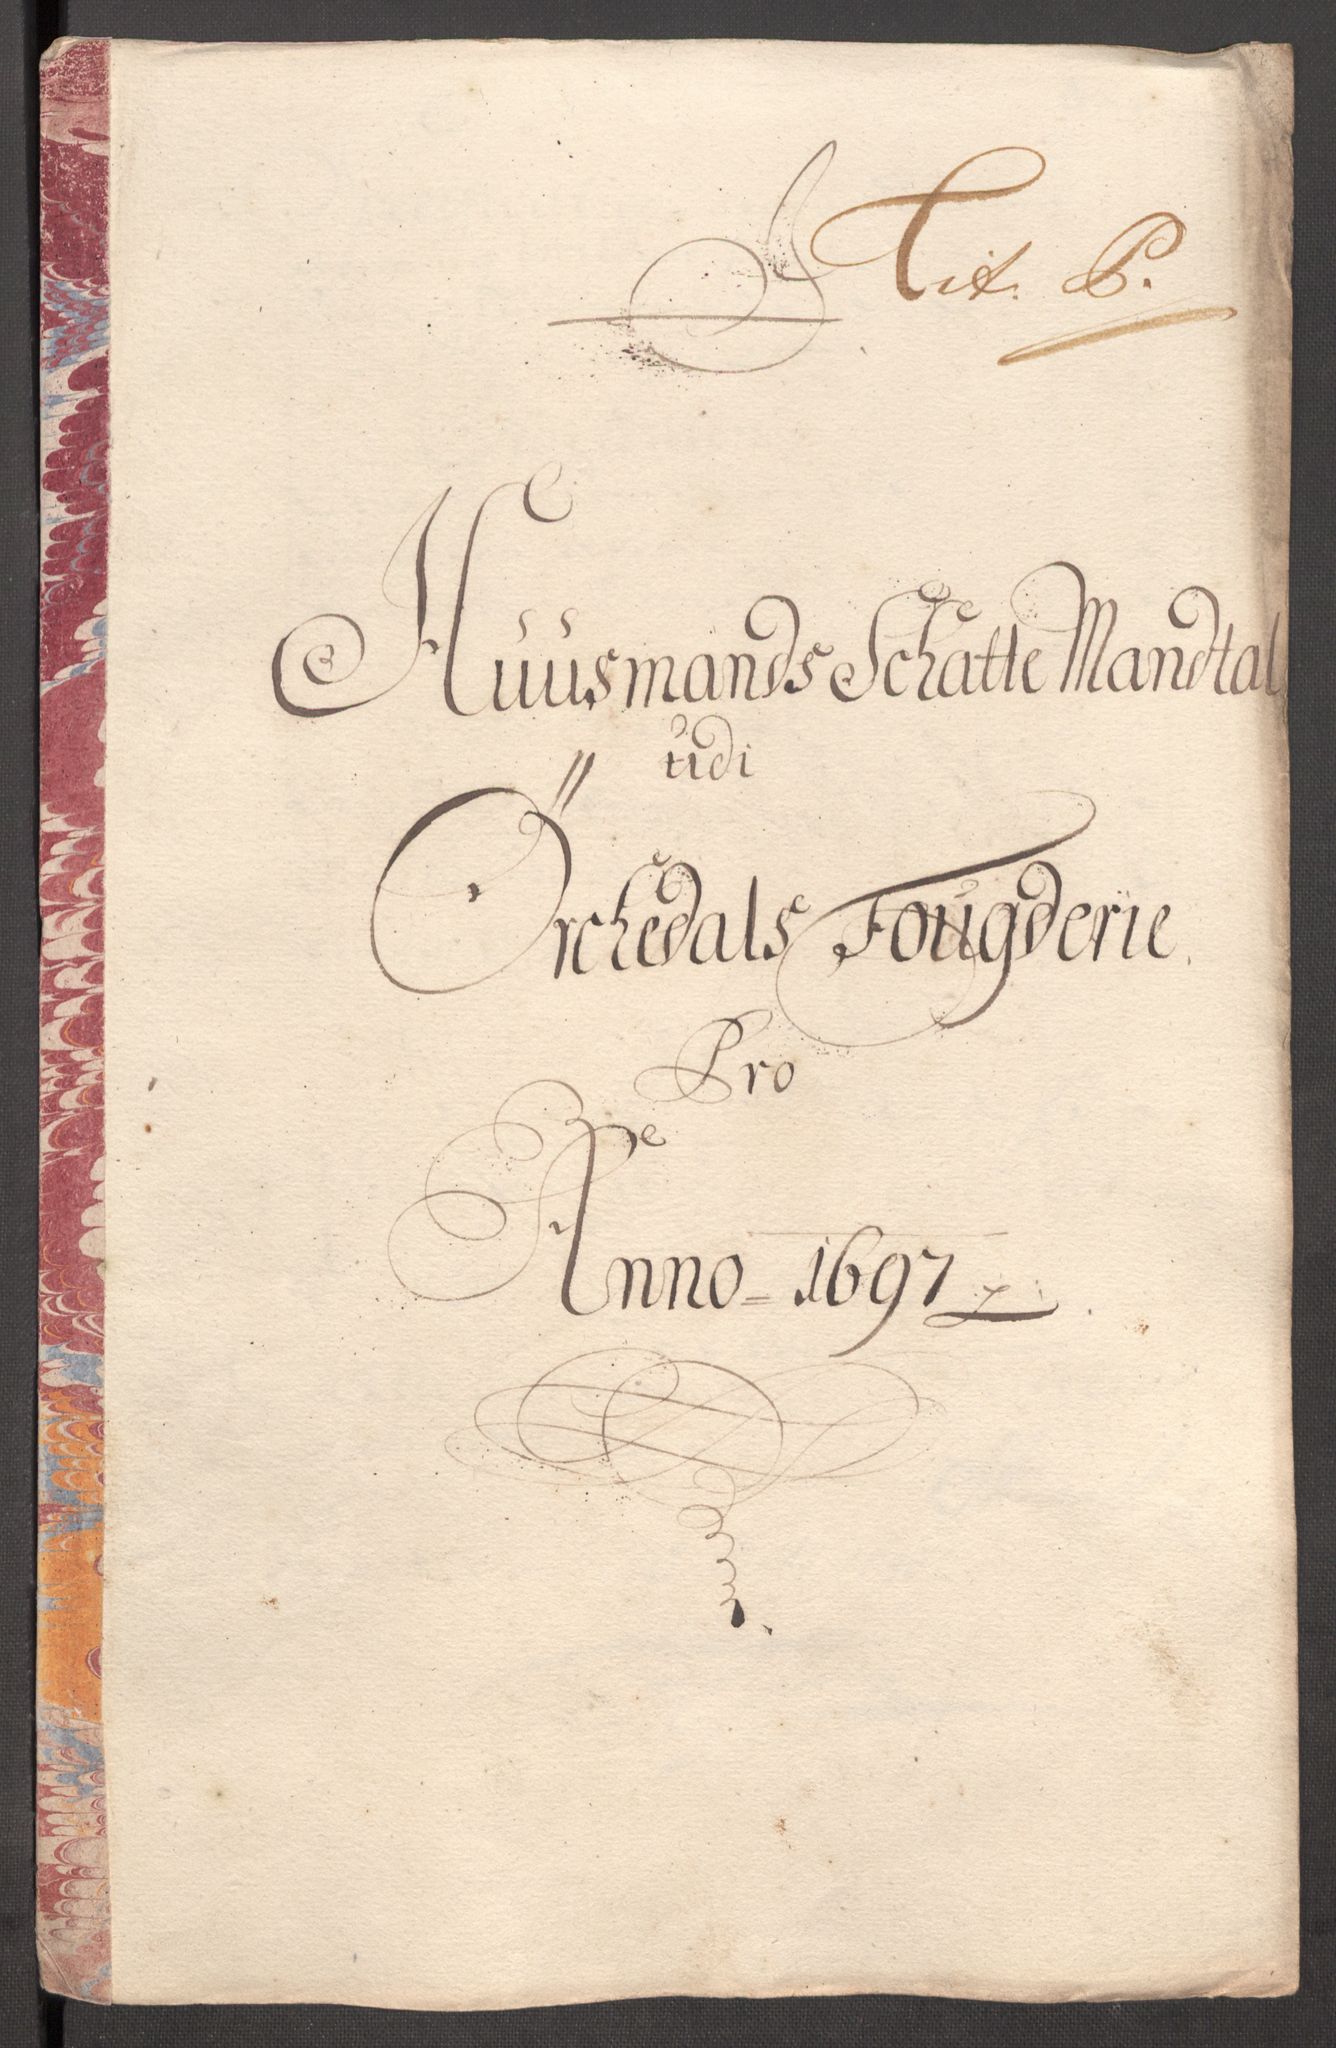 Lit. P.
Huusmands Schatte Mandtal
udi
Örchedals Fougderie.
Pro
Anno = 1697